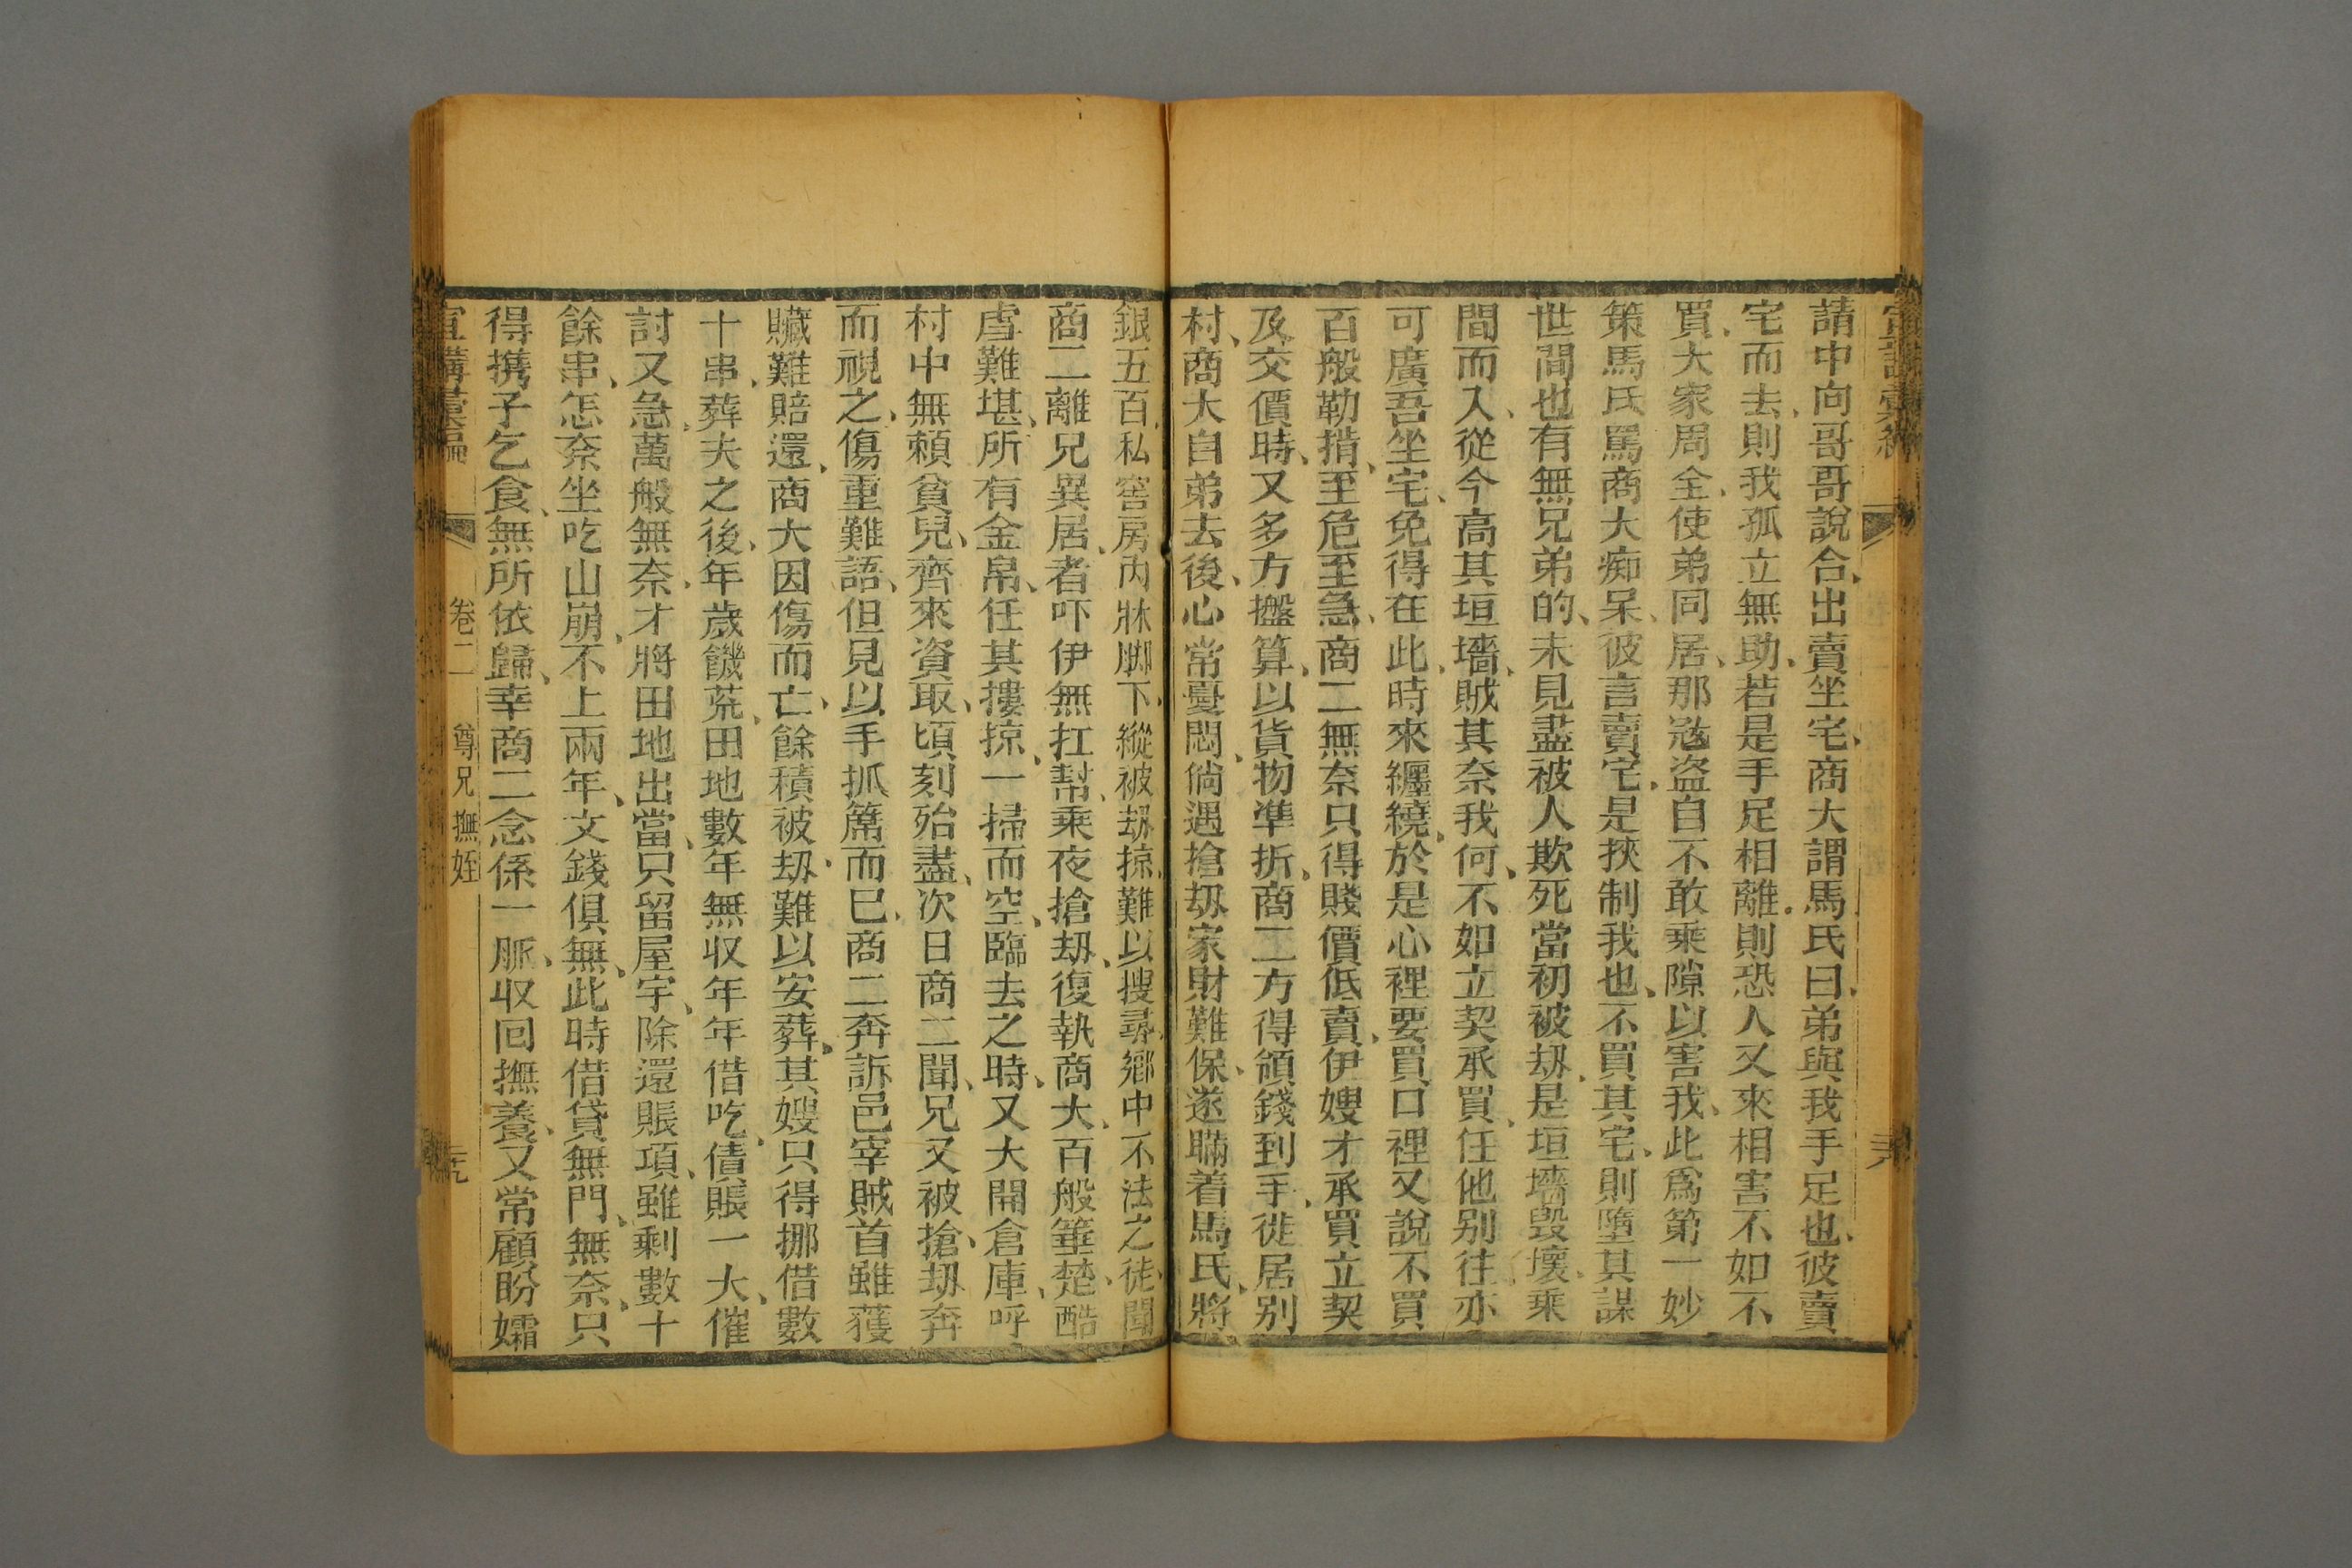 請中向哥哥說合、出賣坐宅、商大謂馬氏曰、弟與我手足也、彼賣
宅而去、則我孤立無助、若是手足相離、則恐人又來相害不如不
買、大家周全、使弟同居、那寇盜自不敢乘隙以害我、此爲第一妙
策馬氏罵商大痴呆、彼言賣宅、是挾制我也、不買其宅、則墮其謀
世間也有無兄弟的、未見盡被人欺死當初被刼、是垣墻毀壞、乘
間而入、從今高其垣墻、賊其奈我何、不如立契承買、任他别往亦
可廣吾坐宅、免得在此、時來纒繞、於是心裡要買口裡又說不買
百般勒掯、至危至急、商二無奈只得賤價低賣、伊嫂才承買立契
及交價時、又多方盤算、以貨物準折、商二方得領錢到手、徙居别
村、商大自弟去後、心常憂悶、倘遇搶刼家財難保、遂瞞着馬氏、將
銀五百、私窖房内牀脚下、縱被刼掠、難以搜尋、鄉中不法之徒、聞
商二離兄異居、者吓伊無扛幫、乘夜搶刼、復執商大、百般箠楚、酷
虐難堪、所有金帛、任其摟掠、一掃而空、臨去之時、又大開倉庫、呼
村中無賴貧兒、齊來資取、頃刻殆盡、次日商二聞、兄又被搶、刼奔
而視之、傷重難語、但見以手抓蓆而已、商二奔訴邑宰賊首雖獲
贓難賠還、商大因傷而亡、餘積被刼、難以安葬、其嫂只得挪借數
十串、葬夫之後、年歲饑荒、田地數年無収年年借吃、債賬一大、催
討又急、萬般無奈、才將田地出當、只留屋宇、除還賬項、雖剩數十
餘串、怎奈坐吃山崩、不上兩年、文錢俱無、此時借貸無門、無奈、只
得攜子乞食、無所依歸、幸商二念係一脈、収回撫養、又常顧盼孀
卷二
尊兄撫姪